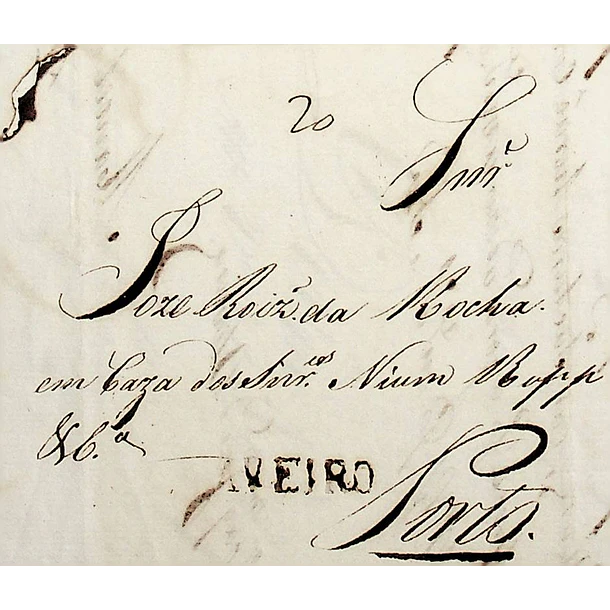 20
Snr.
Joze Roiz. da Rocha.
em Caza dos Snres. Nium Ropp
& C.ª
AVEIRO
Porto.